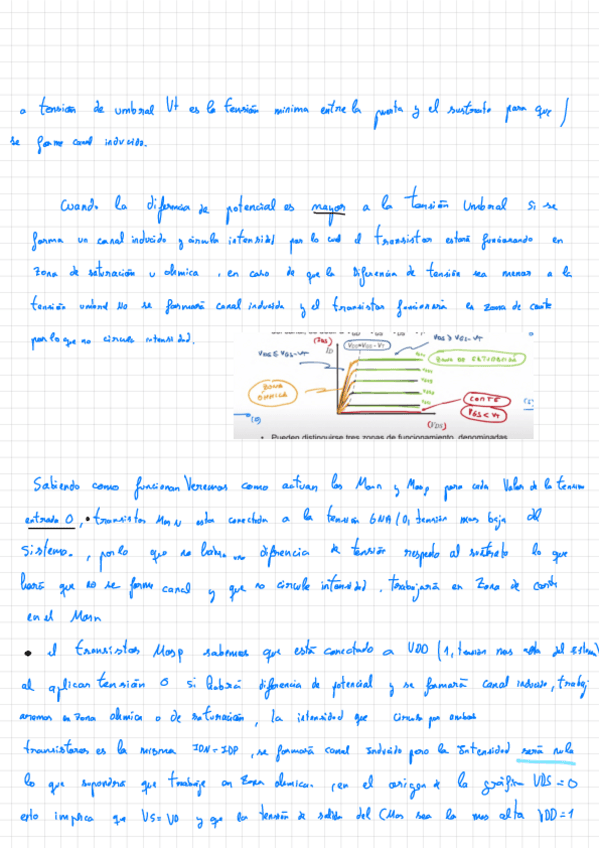 a tensión de umbral Vt es la tensión minima entre la puerta y el sustrato para que
se forme canal inducido.
Cuando la diferencia de potencial es mayor a la tensión Umbral si se
forma un canal inducido y circula intensidad por lo cual el transistor estará funcionando en
zona de saturación u ohmica, en caso de que la diferencia de tensión sea menor a la
tensión umbral no se formará canal inducido y el transistor funcionaria en zona de corte
por lo que no circula intensidad.
(IDS)
VDS=VGS-VT
VDS ≥ VGS-VT
VDS ≤ VGS-VT
ZONA
OHMICA
CORTE
VGS<VT
(VDS)
• Pueden distinguirse tres zonas de funcionamiento, denominadas
Sabiendo como funcionan Veremos como actuan los Mosn y Mosp para cada Valor de la tension
entrada 0, • transistor Mos N esta conectada a la tension GND (0, tensión mas baja del
sistema., por lo que no habra diferencia de tensión respecto al sustrato lo que
hará que no se forme canal y que no circule intensidad, trabajará en Zona de corte
en el Mosn
• el transistor Mosp sabemos que está conectado a VDD (1, tension mas alta del sistema)
al aplicar tensión 0 si habrá diferencia de potencial y se formará canal inducido, trabaj
aremos en zona ohmica o de saturación, la intensidad que circula por ambos
transistores es la misma IDN=IDP, se formará canal inducido pero la Intensidad será nula
lo que supondría que trabaje en zona ohmica, en el origen de la gráfica VDS=0
esto implica que VS=VD y que la tensión de salida del CMos sea la mas alta VDD=1